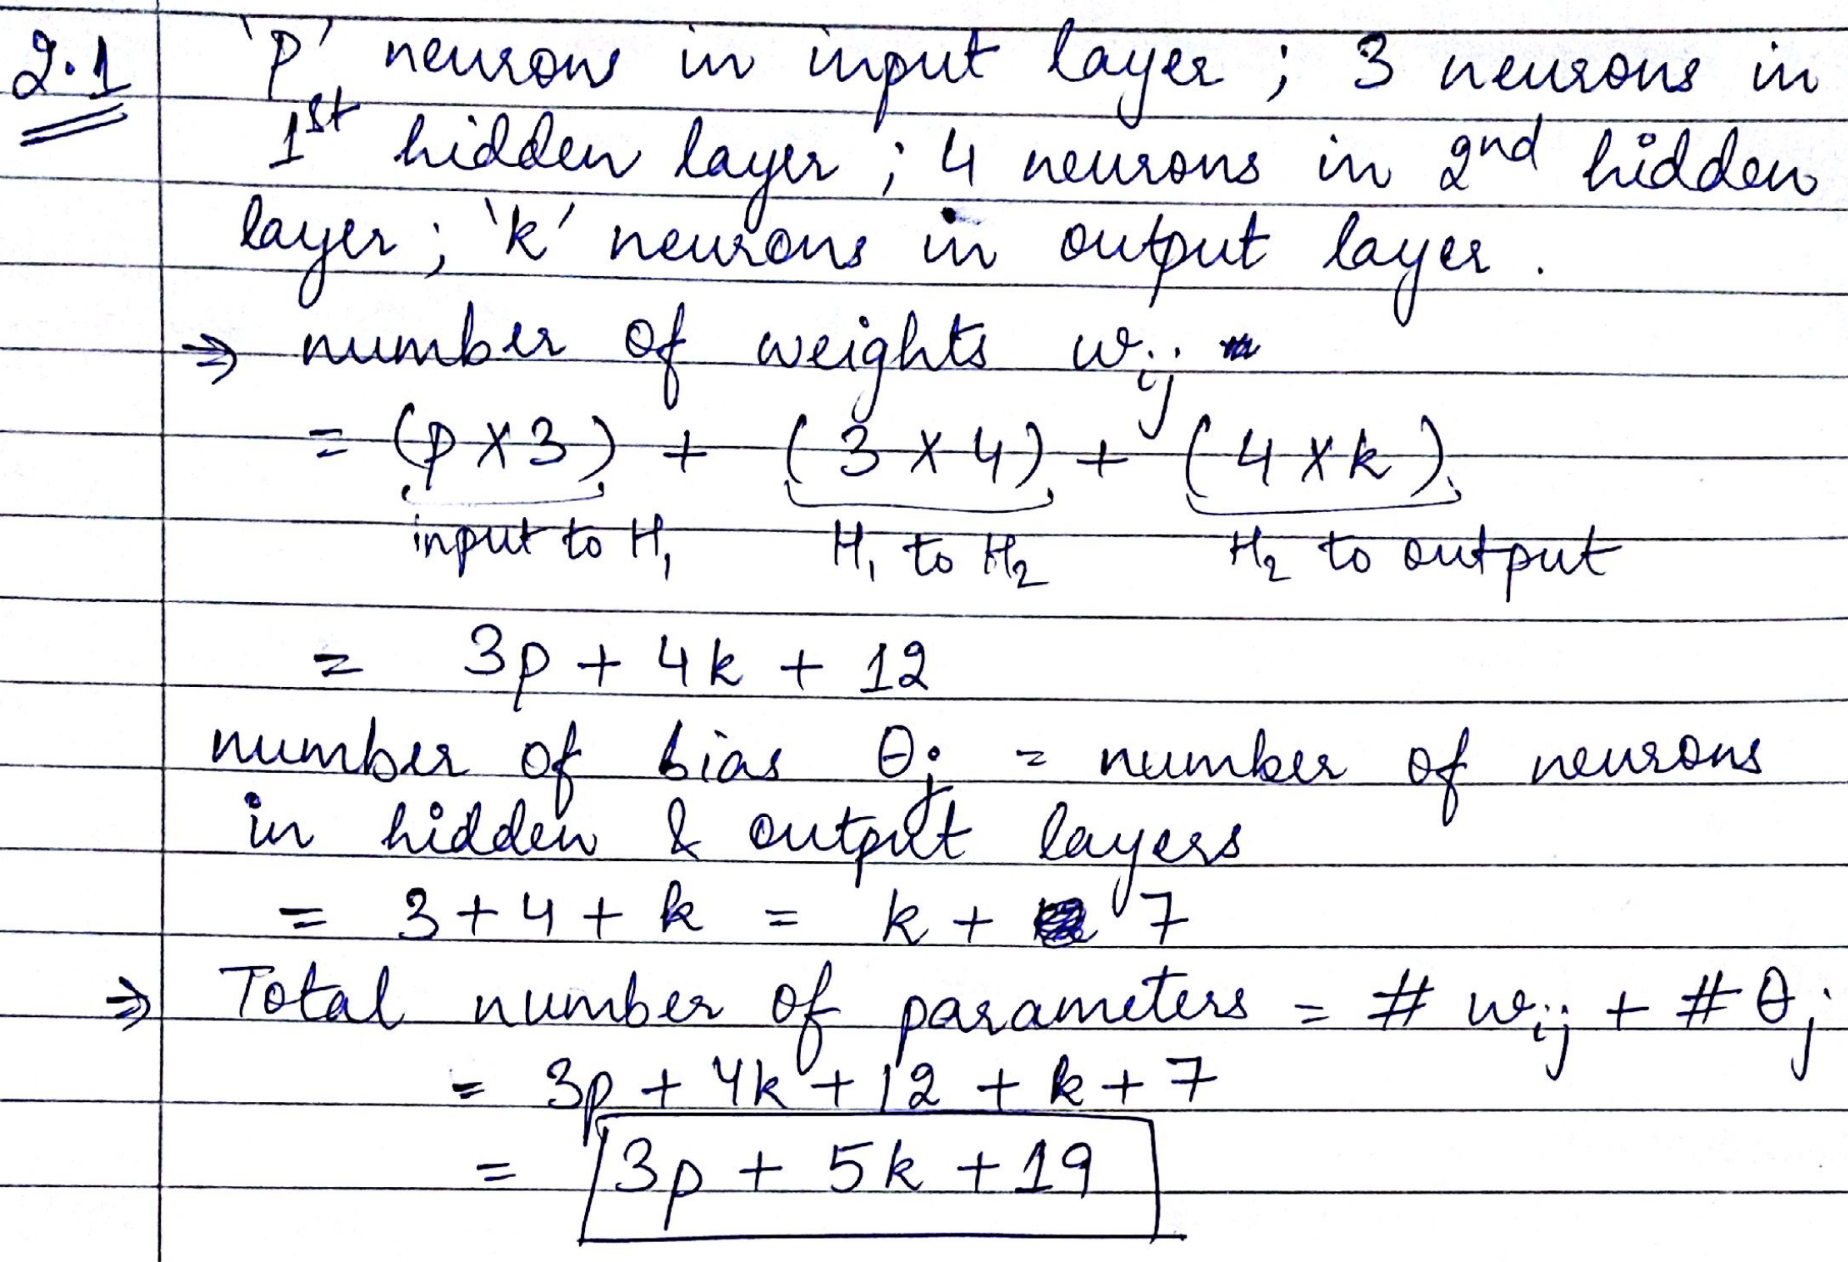 2.1 'p' neurons in input layer ; 3 neurons in
1st hidden layer ; 4 neurons in 2nd hidden
layer ; 'k' neurons in output layer .
⇒ number of weights wij
= (p x 3) + (3 x 4) + (4 x k)
input to H1 H1 to H2 H2 to output
= 3p + 4k + 12
number of bias θj = number of neurons
in hidden & output layers
= 3 + 4 + k = k + 7
⇒ Total number of parameters = # wij + # θj
= 3p + 4k + 12 + k + 7
= 3p + 5k + 19